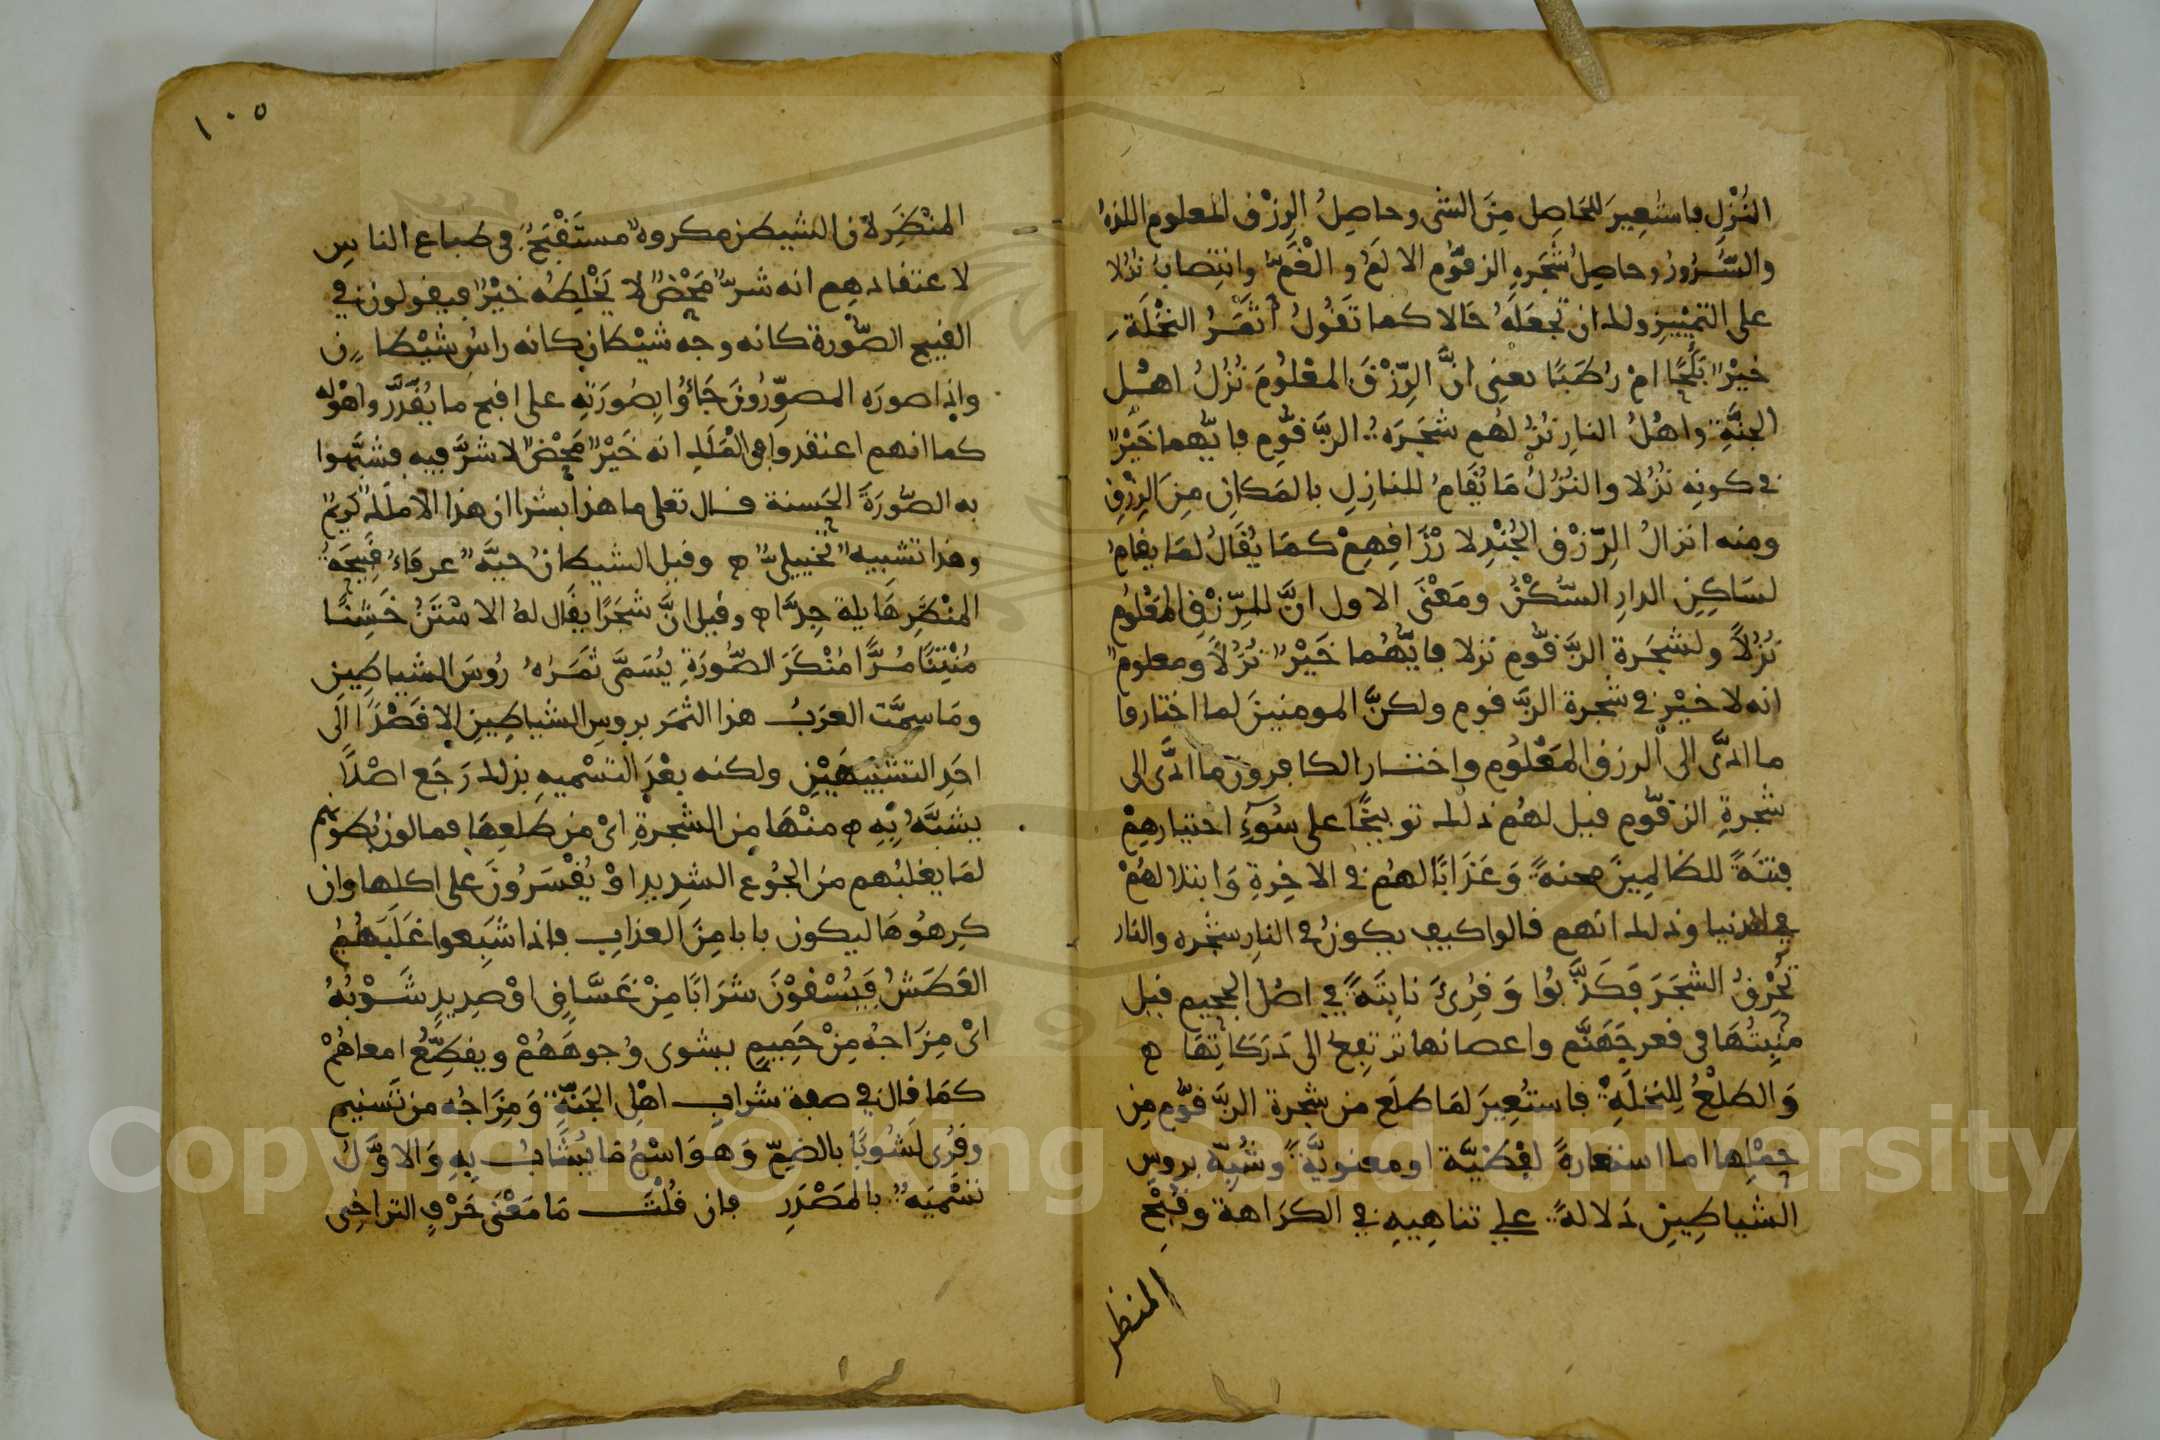 النُزْلِ فاستُعِيرَ للحَاصِل مِنَ الشى وحاصِلُ الرِزْق المعلوم اللذة
والسُّرُورُ وحاصِلُ شَجَرهِ الزقُّوم الالَمُ والْغَمُّ وانتِصابُ نُزُلا
على التمْييزِ ولك ان تجعَلَهُ حَالا كما تَقُولُ أثَمَرُ النخْلَةِ
خيْرٌ بَلَحًا امْ رُطَبًا يعنِى انَّ الرِّزْقَ المعْلُومَ نُزُلُ اهْل
الجنَّةِ واهْلُ النارِ نُزُلهُم شَجَرَهُ الزَّقُّومِ فايّهما خَيْرٌ
في كونِهِ نُزُلا والنُزُلُ مَا يُقَامُ للنازِلِ بالمَكانِ مِنَ الرِزْقِ
ومنه انزالُ الرِّزْق الجُنْدِ لارْزَاقِهِمْ كمَا يُقَالُ لمَا يقامُ
لسَاكِنِ الدارِ السّكْنُ ومَعْنَى الاول انَّ للرِّزْقِ المَعْلُومِ
نُزُلاً ولشجَرةِ الزَّقُّوم نزلا فايُّهُما خَيْرٌ نُزُلاً ومعلومٌ
انه لا خيْرَ في شجرة الزَّقوم ولكنَّ المومنينَ لما اختاروا
ما ادَّى الى الرزق المَعْلُوم واختار الكافرون ما ادَّى الى
شجرةِ الزقُّوم قيل لهُم ذلك توبيخًا على سُوءِ اختيارِهِمْ
فِتنَةً للظالمِينَ محنةً وَعَذَابًا لهُم في الاخِرةِ وَابتلا لهُمْ
في الدنيا وذلك انهم قالوا كيف يكونُ في النارِ شجره والنار
تُحْرِقُ الشجَرَ فَكَذَّبُوا وَقُرِئَ نَابِتَةً في اصْل الجحيم قيل
مَنْبِتُهَا فى قعرِ جَهَنَّم واغصانها ترتفِعُ الى دَرَكَاتِهَا ه
وَالطلْعُ لِلنخلَةِ فاستُعِيرَ لمَا طلَع من شجرة الزَّقُّوم مِن
حِمْلِها اما استعارةً لفْظيَّة او معنويَّةً وشُبِّهَ بروسِ
الشياطِينِ دَلالةً على تناهِيهِ في الكرَاهة وقُبْحِ
المنظر
١٠٥
المنْظَرِ لانّ الشيطن مكروهٌ مستَقْبَحٌ فى طباع الناسِ
لاعتقادهِم انه شرٌّ مَحْضٌ لا يَخْلِطُه خيْرٌ فيقولون في
القبيح الصُّورة كانه وجه شيْطان كانه راسُ شيْطان
واذا صوره المصوِّرُونَ جَاءُوا بِصُورَتِهِ على اقبح ما يُقَدَّر واهْوله
كما انهم اعتقدوا فى المَلَكِ انه خَيْرٌ مَحْضٌ لا شرَّ فيه فشبَّهوا
به الصُّورَةَ الحَسنة قال تعلى ما هذا بشرا ان هذا الا ملك كَريمٌ
وهذا تشبيهٌ تخييلىٌّ ه وقيل الشيطانُ حيَّةٌ عرفاءُ قبيحَةُ
المنْظَرِ هَايلة جِدًّا ه وقيل انَّ شجَرًا يقَال لهُ الاسْتَنُ خَشِنًا
مُنْتِنًا مُرًّا مُنْكَرَ الصُّورَةِ يُسَمَّى ثَمَرَهُ رُوسَ الشياطِينِ
ومَا سمَّت العَربُ هذا الثمَر بروسِ الشياطِين إلا قَصْدًا الَى
احَدِ التشْبِيهَيْنِ ولكنه بعْدَ التسْميهِ بذلك رَجَع اصْلاً
يشَبَّهُ بِهِ ه منْهَا مِن الشجرةِ اىْ من طلعِهَا فمالون بُطونهم
لمَا يغلبُهم مِنَ الجُوعِ الشدِيدِ اوْ يُقْسَرُونَ على اكلِها وان
كرِهوُهَا ليكون بابا مِنَ العذابِ فاذا شَبِعوا غَلَبَهُمُ
العَطَشُ فيُسْقوْنَ شَرَابًا مِنْ غَسَّاقٍ اوْ صدِيدٍ شَوْبُهُ
اىْ مِزَاجُه مِنْ حَمِيمٍ يشوى وُجوهَهُمْ ويقطِّعُ امعاهُمْ
كمَا قال في صفة شرابِ اهْل الجَنَّةِ وَمِزَاجُه من تَسنِيم
وقُرِى لَشُوبًا بالضمّ وَهوَ اسْمُ مَا يُشَابُ بِهِ وَالاوَّلُ
تسْميَهٌ بالمَصْدَرِ فان قُلْتَ مَا مَعْنَى حَرْفِ التراخِى
Copyright © King Saud University